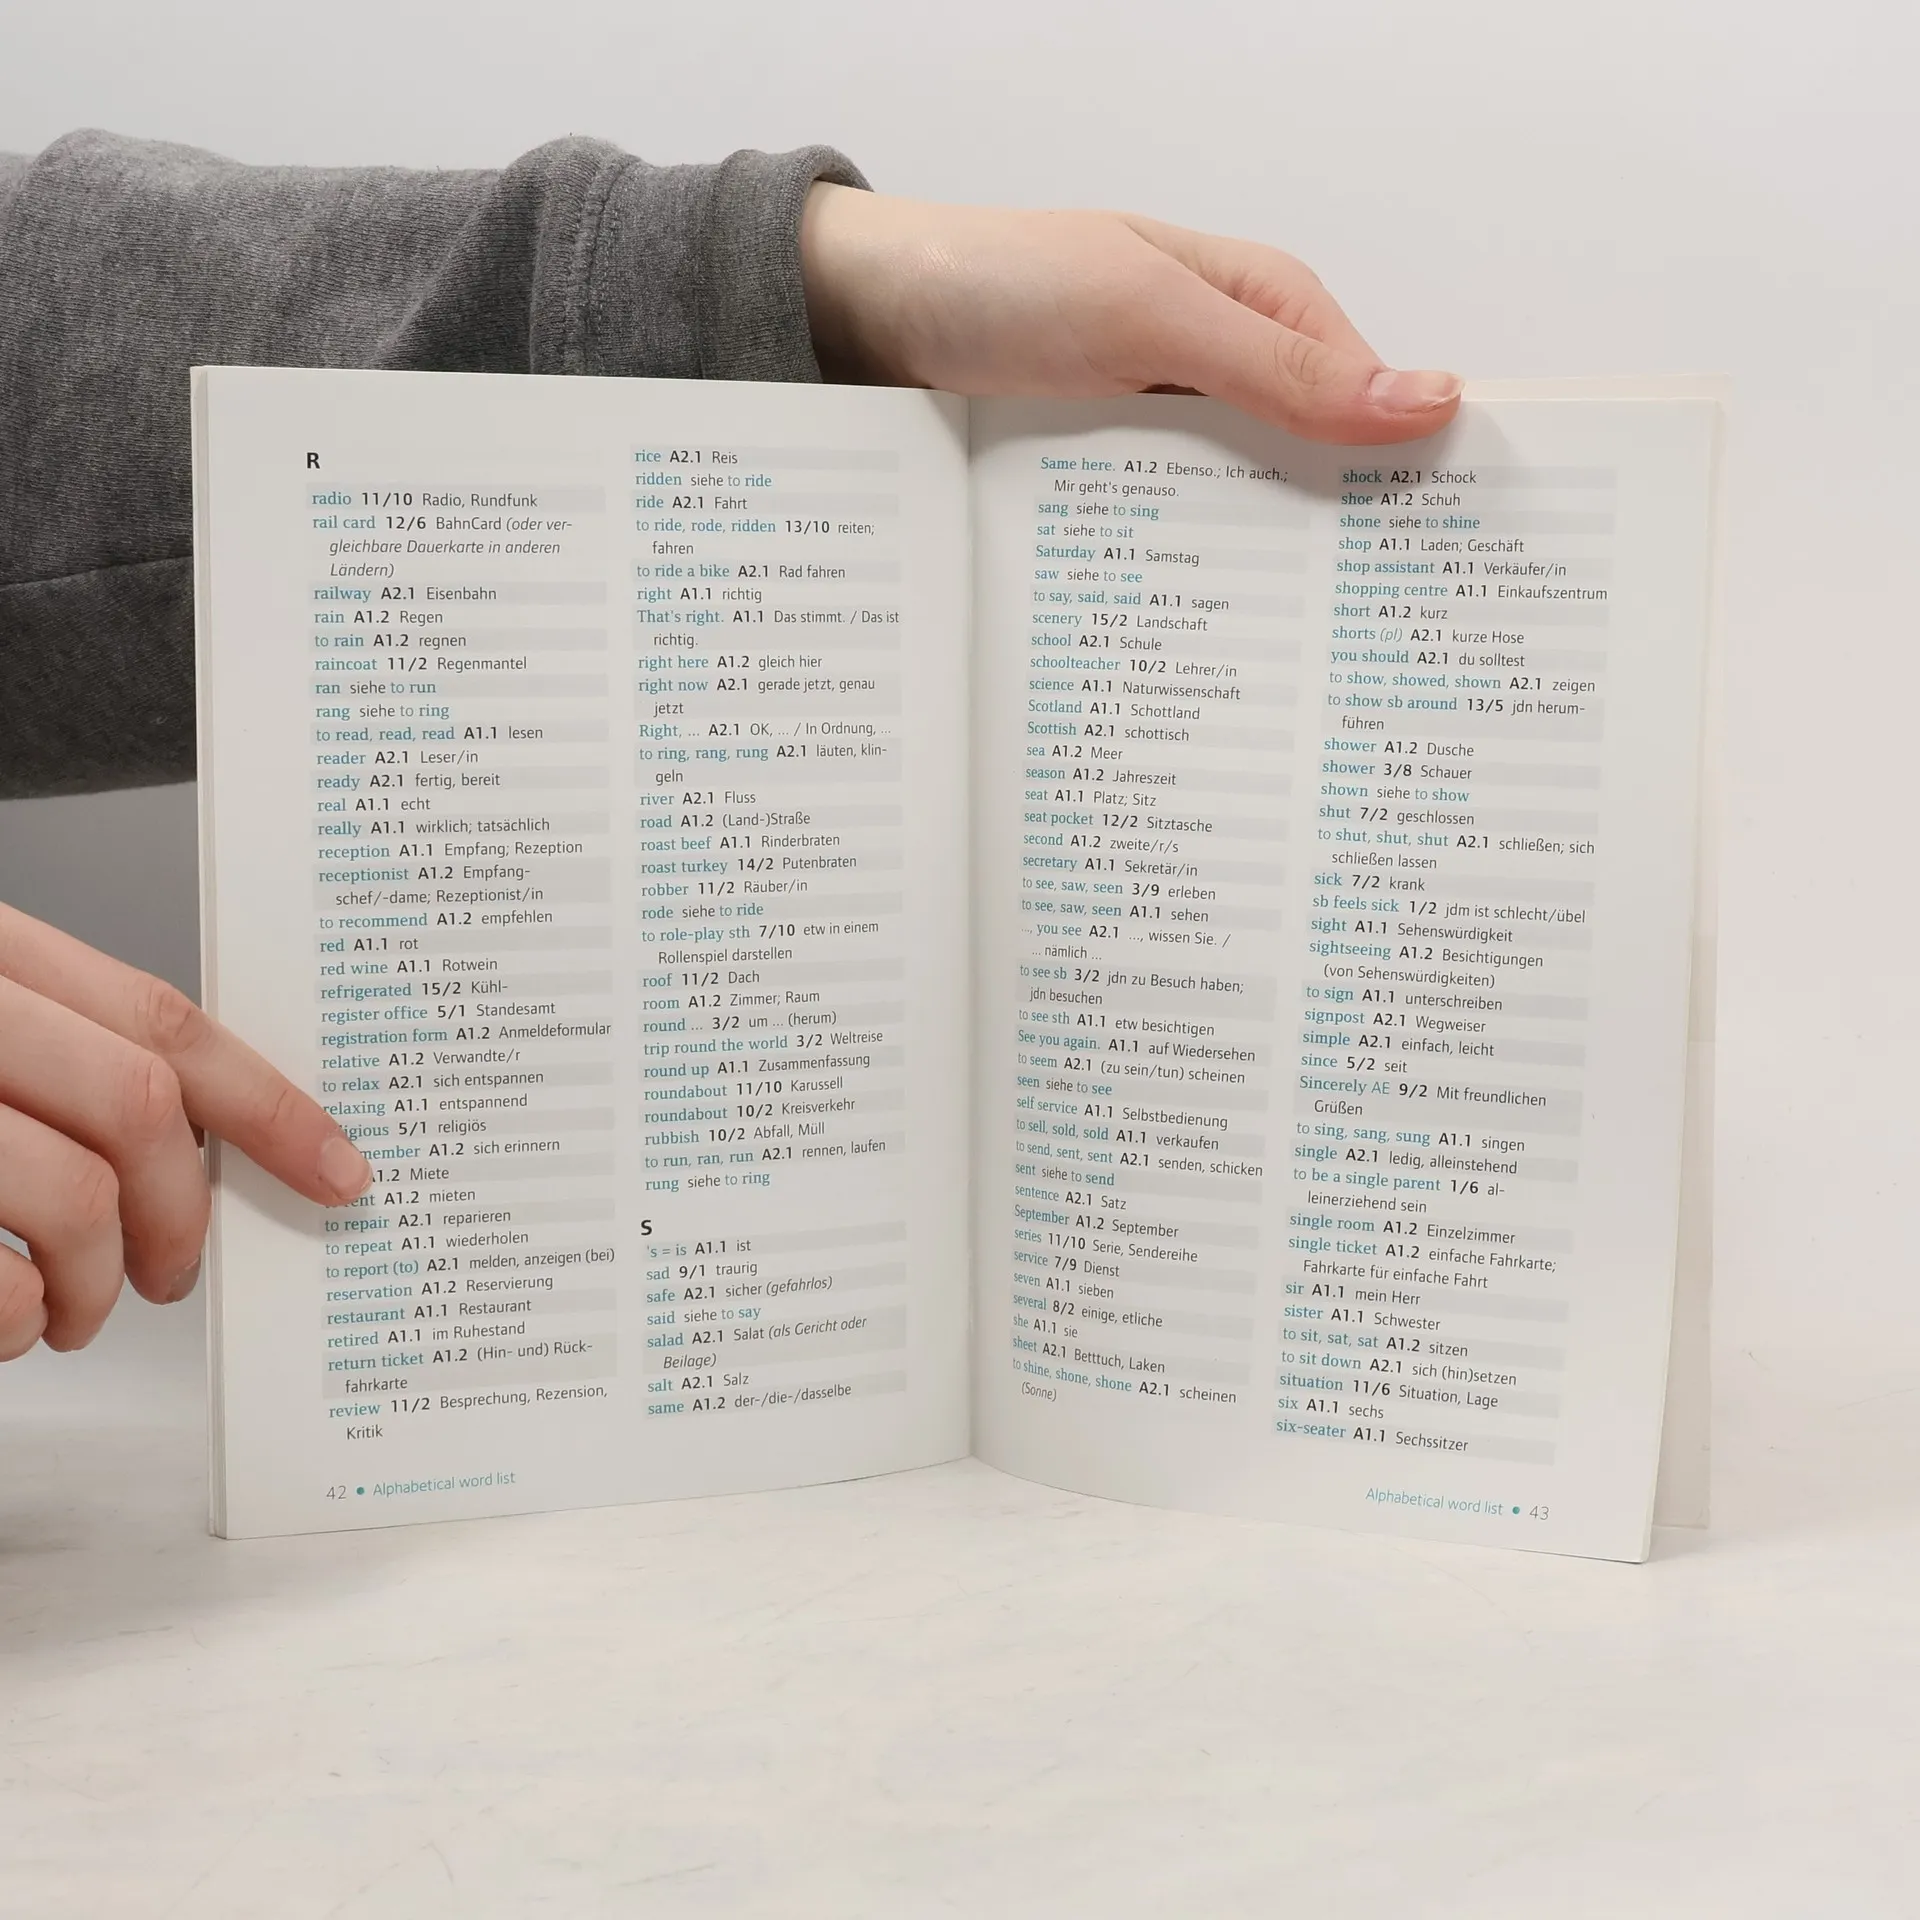 R
radio 11/10 Radio, Rundfunk
rail card 12/6 BahnCard (oder ver-
gleichbare Dauerkarte in anderen
Ländern)
railway A2.1 Eisenbahn
rain A1.2 Regen
to rain A1.2 regnen
raincoat 11/2 Regenmantel
ran siehe to run
rang siehe to ring
to read, read, read A1.1 lesen
reader A2.1 Leser/in
ready A2.1 fertig, bereit
real A1.1 echt
really A1.1 wirklich; tatsächlich
reception A1.1 Empfang; Rezeption
receptionist A1.2 Empfang-
schef/-dame; Rezeptionist/in
to recommend A1.2 empfehlen
red A1.1 rot
red wine A1.1 Rotwein
refrigerated 15/2 Kühl-
register office 5/1 Standesamt
registration form A1.2 Anmeldeformular
relative A1.2 Verwandte/r
to relax A2.1 sich entspannen
relaxing A1.1 entspannend
5/1 religiös
A1.2 sich erinnern
A1.2 Miete
A1.2 mieten
to repair A2.1 reparieren
to repeat A1.1 wiederholen
to report (to) A2.1 melden, anzeigen (bei)
reservation A1.2 Reservierung
restaurant A1.1 Restaurant
retired A1.1 im Ruhestand
return ticket A1.2 (Hin- und) Rück-
fahrkarte
review 11/2 Besprechung, Rezension,
Kritik
rice A2.1 Reis
ridden siehe to ride
ride A2.1 Fahrt
to ride, rode, ridden 13/10 reiten;
fahren
to ride a bike A2.1 Rad fahren
right A1.1 richtig
That's right. A1.1 Das stimmt. / Das ist
richtig.
right here A1.2 gleich hier
right now A2.1 gerade jetzt, genau
jetzt
Right, ... A2.1 OK, ... / In Ordnung, ...
to ring, rang, rung A2.1 läuten, klin-
geln
river A2.1 Fluss
road A1.2 (Land-)Straße
roast beef A1.1 Rinderbraten
roast turkey 14/2 Putenbraten
robber 11/2 Räuber/in
rode siehe to ride
to role-play sth 7/10 etw in einem
Rollenspiel darstellen
roof 11/2 Dach
room A1.2 Zimmer; Raum
round ... 3/2 um ... (herum)
trip round the world 3/2 Weltreise
round up A1.1 Zusammenfassung
roundabout 11/10 Karussell
roundabout 10/2 Kreisverkehr
rubbish 10/2 Abfall, Müll
to run, ran, run A2.1 rennen, laufen
rung siehe to ring
S
's = is A1.1 ist
sad 9/1 traurig
safe A2.1 sicher (gefahrlos)
said siehe to say
salad A2.1 Salat (als Gericht oder
Beilage)
salt A2.1 Salz
same A1.2 der-/die-/dasselbe
42 • Alphabetical word list
Same here. A1.2 Ebenso.; Ich auch.;
Mir geht's genauso.
sang siehe to sing
sat siehe to sit
Saturday A1.1 Samstag
saw siehe to see
to say, said, said A1.1 sagen
scenery 15/2 Landschaft
school A2.1 Schule
schoolteacher 10/2 Lehrer/in
science A1.1 Naturwissenschaft
Scotland A1.1 Schottland
Scottish A2.1 schottisch
sea A1.2 Meer
season A1.2 Jahreszeit
seat A1.1 Platz; Sitz
seat pocket 12/2 Sitztasche
second A1.2 zweite/r/s
secretary A1.1 Sekretär/in
to see, saw, seen 3/9 erleben
to see, saw, seen A1.1 sehen
..., you see A2.1 ..., wissen Sie. /
... nämlich ...
to see sb 3/2 jdn zu Besuch haben;
jdn besuchen
to see sth A1.1 etw besichtigen
See you again. A1.1 auf Wiedersehen
to seem A2.1 (zu sein/tun) scheinen
seen siehe to see
self service A1.1 Selbstbedienung
to sell, sold, sold A1.1 verkaufen
to send, sent, sent A2.1 senden, schicken
sent siehe to send
sentence A2.1 Satz
September A1.2 September
series 11/10 Serie, Sendereihe
service 7/9 Dienst
seven A1.1 sieben
several 8/2 einige, etliche
she A1.1 sie
sheet A2.1 Betttuch, Laken
to shine, shone, shone A2.1 scheinen
(Sonne)
shock A2.1 Schock
shoe A1.2 Schuh
shone siehe to shine
shop A1.1 Laden; Geschäft
shop assistant A1.1 Verkäufer/in
shopping centre A1.1 Einkaufszentrum
short A1.2 kurz
shorts (pl) A2.1 kurze Hose
you should A2.1 du solltest
to show, showed, shown A2.1 zeigen
to show sb around 13/5 jdn herum-
führen
shower A1.2 Dusche
shower 3/8 Schauer
shown siehe to show
shut 7/2 geschlossen
to shut, shut, shut A2.1 schließen; sich
schließen lassen
sick 7/2 krank
sb feels sick 1/2 jdm ist schlecht/übel
sight A1.1 Sehenswürdigkeit
sightseeing A1.2 Besichtigungen
(von Sehenswürdigkeiten)
to sign A1.1 unterschreiben
signpost A2.1 Wegweiser
simple A2.1 einfach, leicht
since 5/2 seit
Sincerely AE 9/2 Mit freundlichen
Grüßen
to sing, sang, sung A1.1 singen
single A2.1 ledig, alleinstehend
to be a single parent 1/6 al-
leinerziehend sein
single room A1.2 Einzelzimmer
single ticket A1.2 einfache Fahrkarte;
Fahrkarte für einfache Fahrt
sir A1.1 mein Herr
sister A1.1 Schwester
to sit, sat, sat A1.2 sitzen
to sit down A2.1 sich (hin)setzen
situation 11/6 Situation, Lage
six A1.1 sechs
six-seater A1.1 Sechssitzer
Alphabetical word list • 43